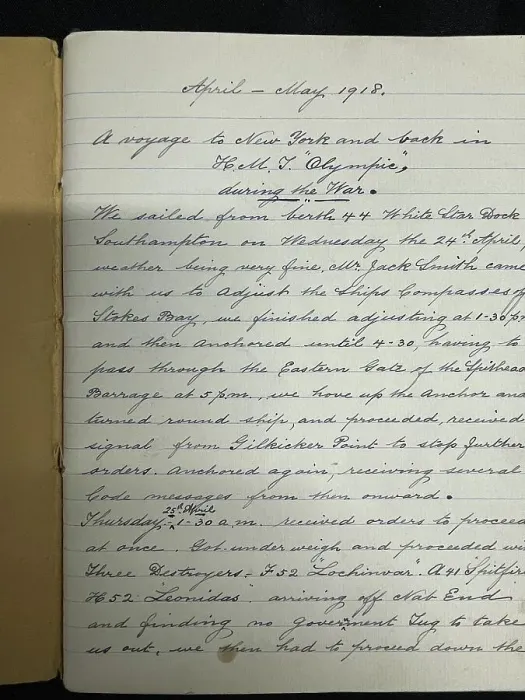 April — May 1918.
A voyage to New York and back in
H.M.T. "Olympic",
during the War.
We sailed from berth 44 White Star Dock
Southampton on Wednesday the 24th April,
weather being very fine, Mr. Jack Smith came
with us to Adjust the Ships Compasses off
Stokes Bay, we finished adjusting at 1-30 p.
and then Anchored until 4-30, having to
pass through the Eastern Gate of the Spithead
Barrage at 5 p.m., we hove up the Anchor and
turned round ship, and proceeded, received
signal from Gilkicker Point to stop further
orders. Anchored again, receiving several
Code messages from then onward.
25th April
Thursday:- 1-30 a.m. received orders to proceed
at once. Got under weigh and proceeded wi
Three Destroyers:- F52 "Lochinvar" A41 Spitfire
H52 "Leonidas" arriving off Nab End
and finding no Goverment Tug to take
us out, we then had to proceed down the